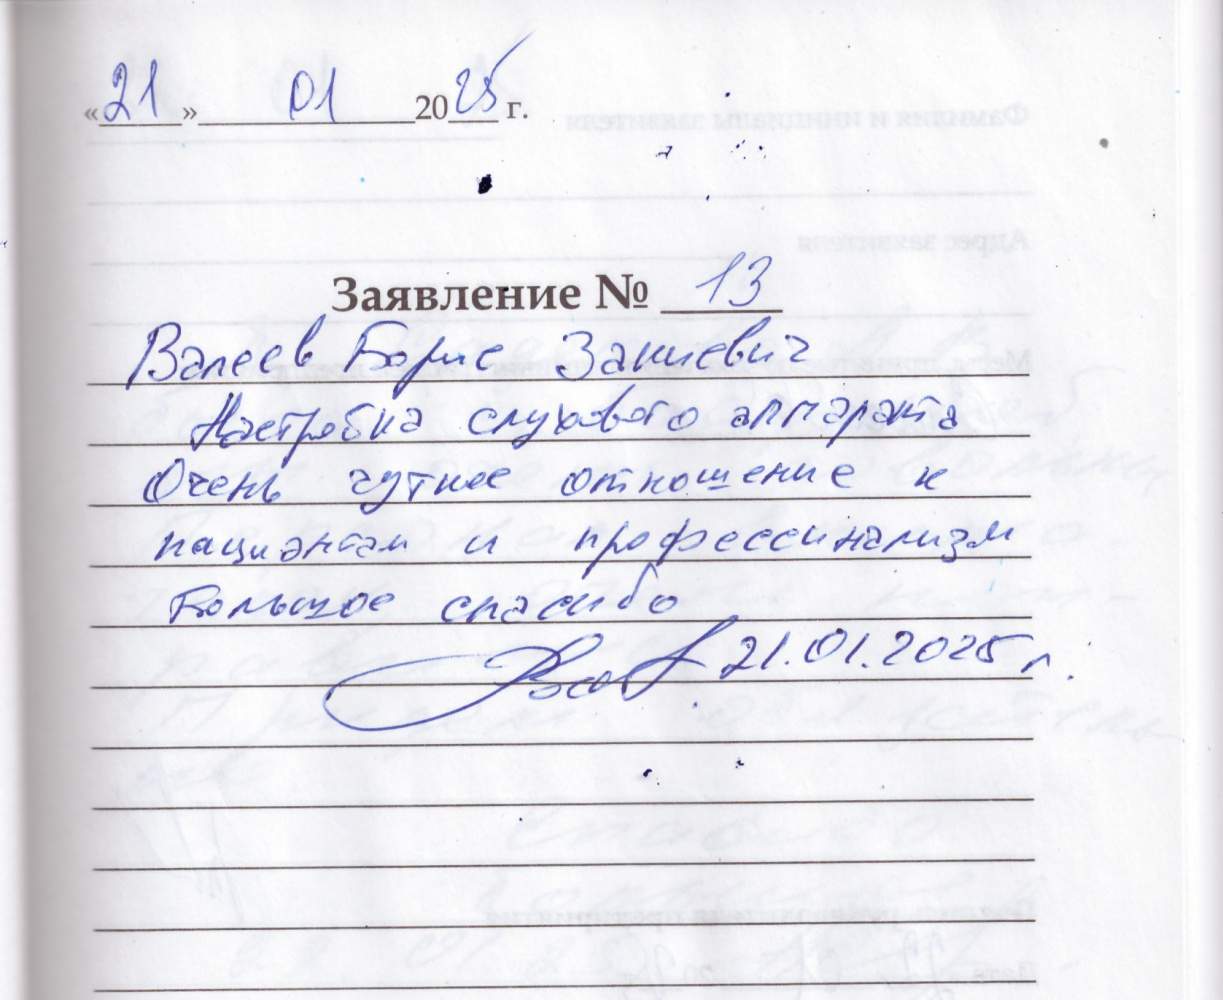 «21» 01 2025 г.
Заявление № 13
Валеев Борис Закиевич
Настройка слухового аппарата
Очень чуткое отношение к
пациентам и профессинализм
Большое спасибо
21.01.2025 г.